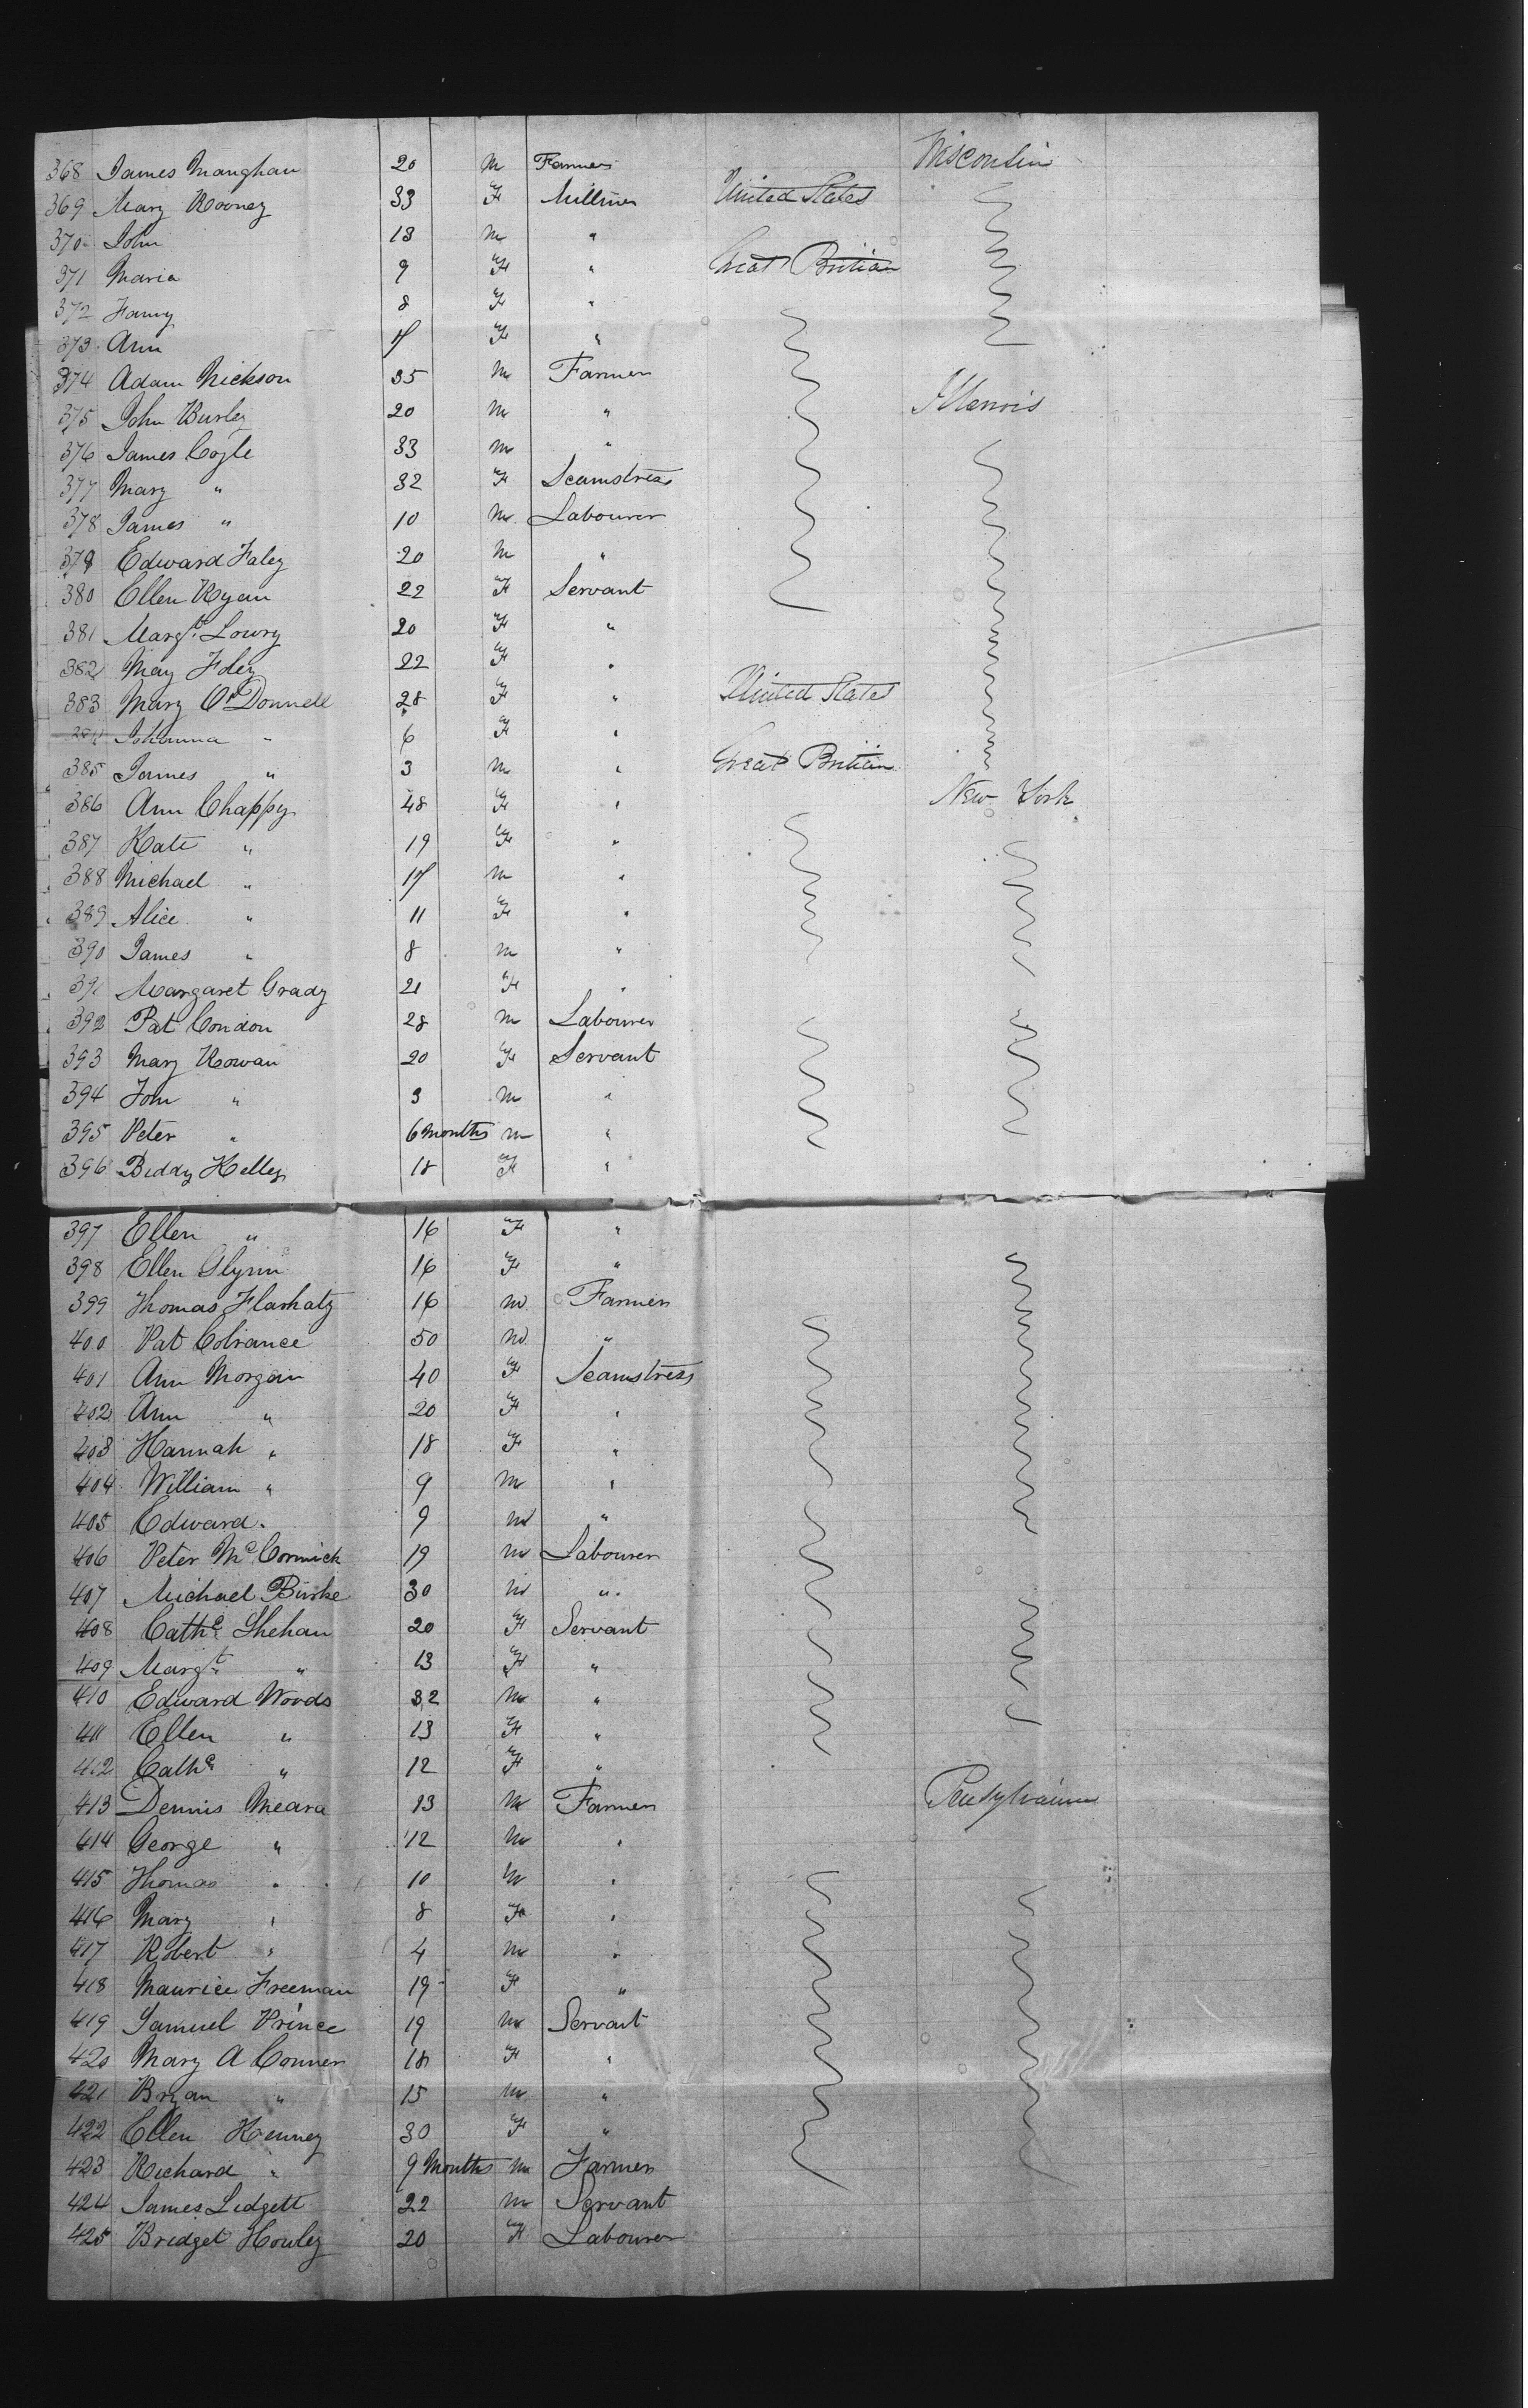 368 James Manghan 20 m Farmer Wisconsin
369 Mary Rooney 33 F Milliner United States
370 John 13 m "
371 Maria 9 F " Great Britian
372 Fanny 8 F "
373 Ann 7 F "
374 Adam Nickson 35 m Farmer
375 John Burley 20 m " Illenois
376 James Coyle 33 m "
377 Mary " 32 F Seamstress
378 James " 10 m Labourer
379 Edward Faley 20 m "
380 Ellen Ryan 22 F Servant
381 Margt. Lowry 20 F "
382 May Foley 22 F "
383 Mary O'Donnell 28 F " United States
384 Johanna " 6 F "
385 James " 3 m " Great Britian
386 Ann Chappy 48 F " New York
387 Kate " 19 F "
388 Michael " 17 m "
389 Alice " 11 F "
390 James " 8 m "
391 Margaret Grady 21 F "
392 Pat Condon 28 m Labourer
393 Mary Rowan 20 F Servant
394 Tom " 3 m "
395 Peter " 6 months m "
396 Biddy Kelley 18 F "
397 Ellen " 16 F "
398 Ellen Glynn 16 F "
399 Thomas Flashaty 16 m Farmer
400 Pat Colrance 50 m "
401 Ann Morgan 40 F Seamstress
402 Ann " 20 F "
403 Hannah " 18 F "
404 William " 9 m "
405 Edward " 9 m "
406 Peter McCormick 19 m Labourer
407 Michael Burke 30 m "
408 Cathe Shehan 20 F Servant
409 Margt " 13 F "
410 Edward Woods 32 m "
411 Ellen " 13 F "
412 Cathe " 12 F "
413 Dennis Meara 13 m Farmer Pensylvainia
414 George " 12 m "
415 Thomas " 10 m "
416 Mary " 8 F "
417 Robert " 4 m "
418 Maurice Freeman 19 F "
419 Samuel Prince 19 m Servant
420 Mary A Conner 18 F "
421 Bryan " 15 m "
422 Ellen Kenney 30 F "
423 Richard " 9 Months m Farmer
424 James Lidgett 22 m Servant
425 Bridget Howley 20 F Labourer